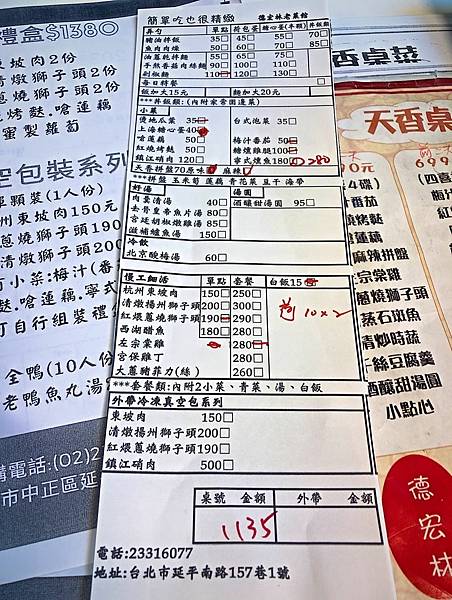 簡單吃也很精緻 德宏林老菜館
弄勺 單點 荷包蛋 糖心蛋(半顆) 丼飯類
豬油拌飯 35 45 55 70
魚肉肉燥 50 60 70 85
油蔥乾拌麵 55 65 75
手撕香菇肉絲麵 90 100 110
剁椒麵 110 120 130
每日拌餐
飯加大15元 麵加大20元
***丼飯類:(內附家常圍邊菜)
小菜
懷地瓜葉 35 台式泡菜 35
上海糖心蛋40
嗆蓮藕 50 梅汁番茄 50
紅燒烤麩 50 糖燻雞腿100
鎮江硝肉 120 寧式燻魚180 280
天香拼盤70原味 麻辣
***拼盤 玉米筍 蓮藕 青花菜 豆干 海帶
好湯 湯圓
肉羹清湯 40 酒釀甜湯圓 95
去骨皇帝魚片湯 80
宮廷胡椒燉雞湯85
滋補鱸魚湯 150
冷飲
北京酸梅湯 60
慢工細活 單點 套餐 白飯15
杭州東坡肉 150 250
清燉揚州獅子頭200 300
紅煨蔥燒獅子頭190 290
西湖醋魚 180 280
左宗棠雞 280
宮保雞丁 280
大蔥豬菲力(絲) 260
10×2
***套餐類:內附2小菜、青菜、湯、白飯
外帶冷凍真空包系列
東坡肉 150
清燉揚州獅子頭200
紅煨蔥燒獅子頭190
鎮江硝肉 500
桌號 金額 外帶 金額
1135
電話:23316077
地址:台北市延平南路157巷1號
禮盒$1380
東坡肉2份
燉獅子頭2份
蔥燒獅子頭2份
烤麩.嗆蓮藕
蜜製蘿蔔
空包裝系列
單顆裝(1人份)
州東坡肉150元
蔥燒獅子頭190
清燉獅子頭200
小菜:梅汁(番
.嗆蓮藕.寧式
可自行組裝禮
全鴨(10人份)
老鴨魚丸湯
購電話:(02)2
市中正區延
香桌菜
天香桌
699
4碟)
(四喜
番茄
燒烤麩
蓮藕
麻辣拼盤
宗棠雞
蔥燒獅子頭
蒸石斑魚
清炒時蔬
干絲豆腐羹
酒釀甜湯圓
小點心
德宏林